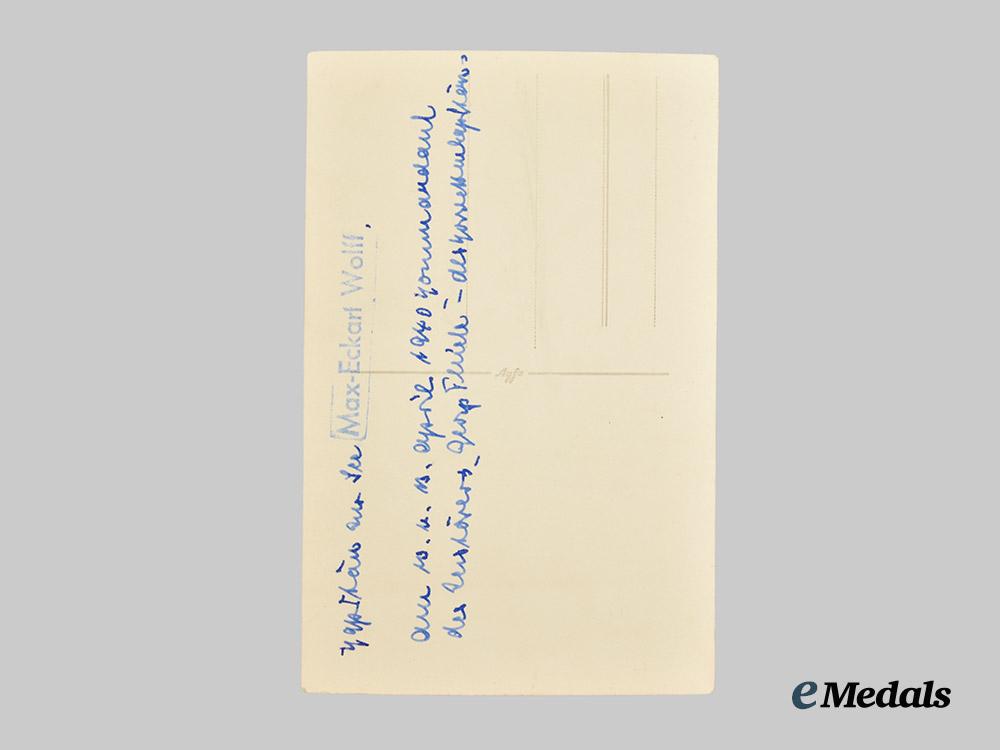 Kapitän zur See Max-Eckart Wolff,
am 10. u. 13. April 1940 Kommandant
des Zerstörers „Georg Thiele“ – als Korvettenkapitän.
Agfa
eMedals